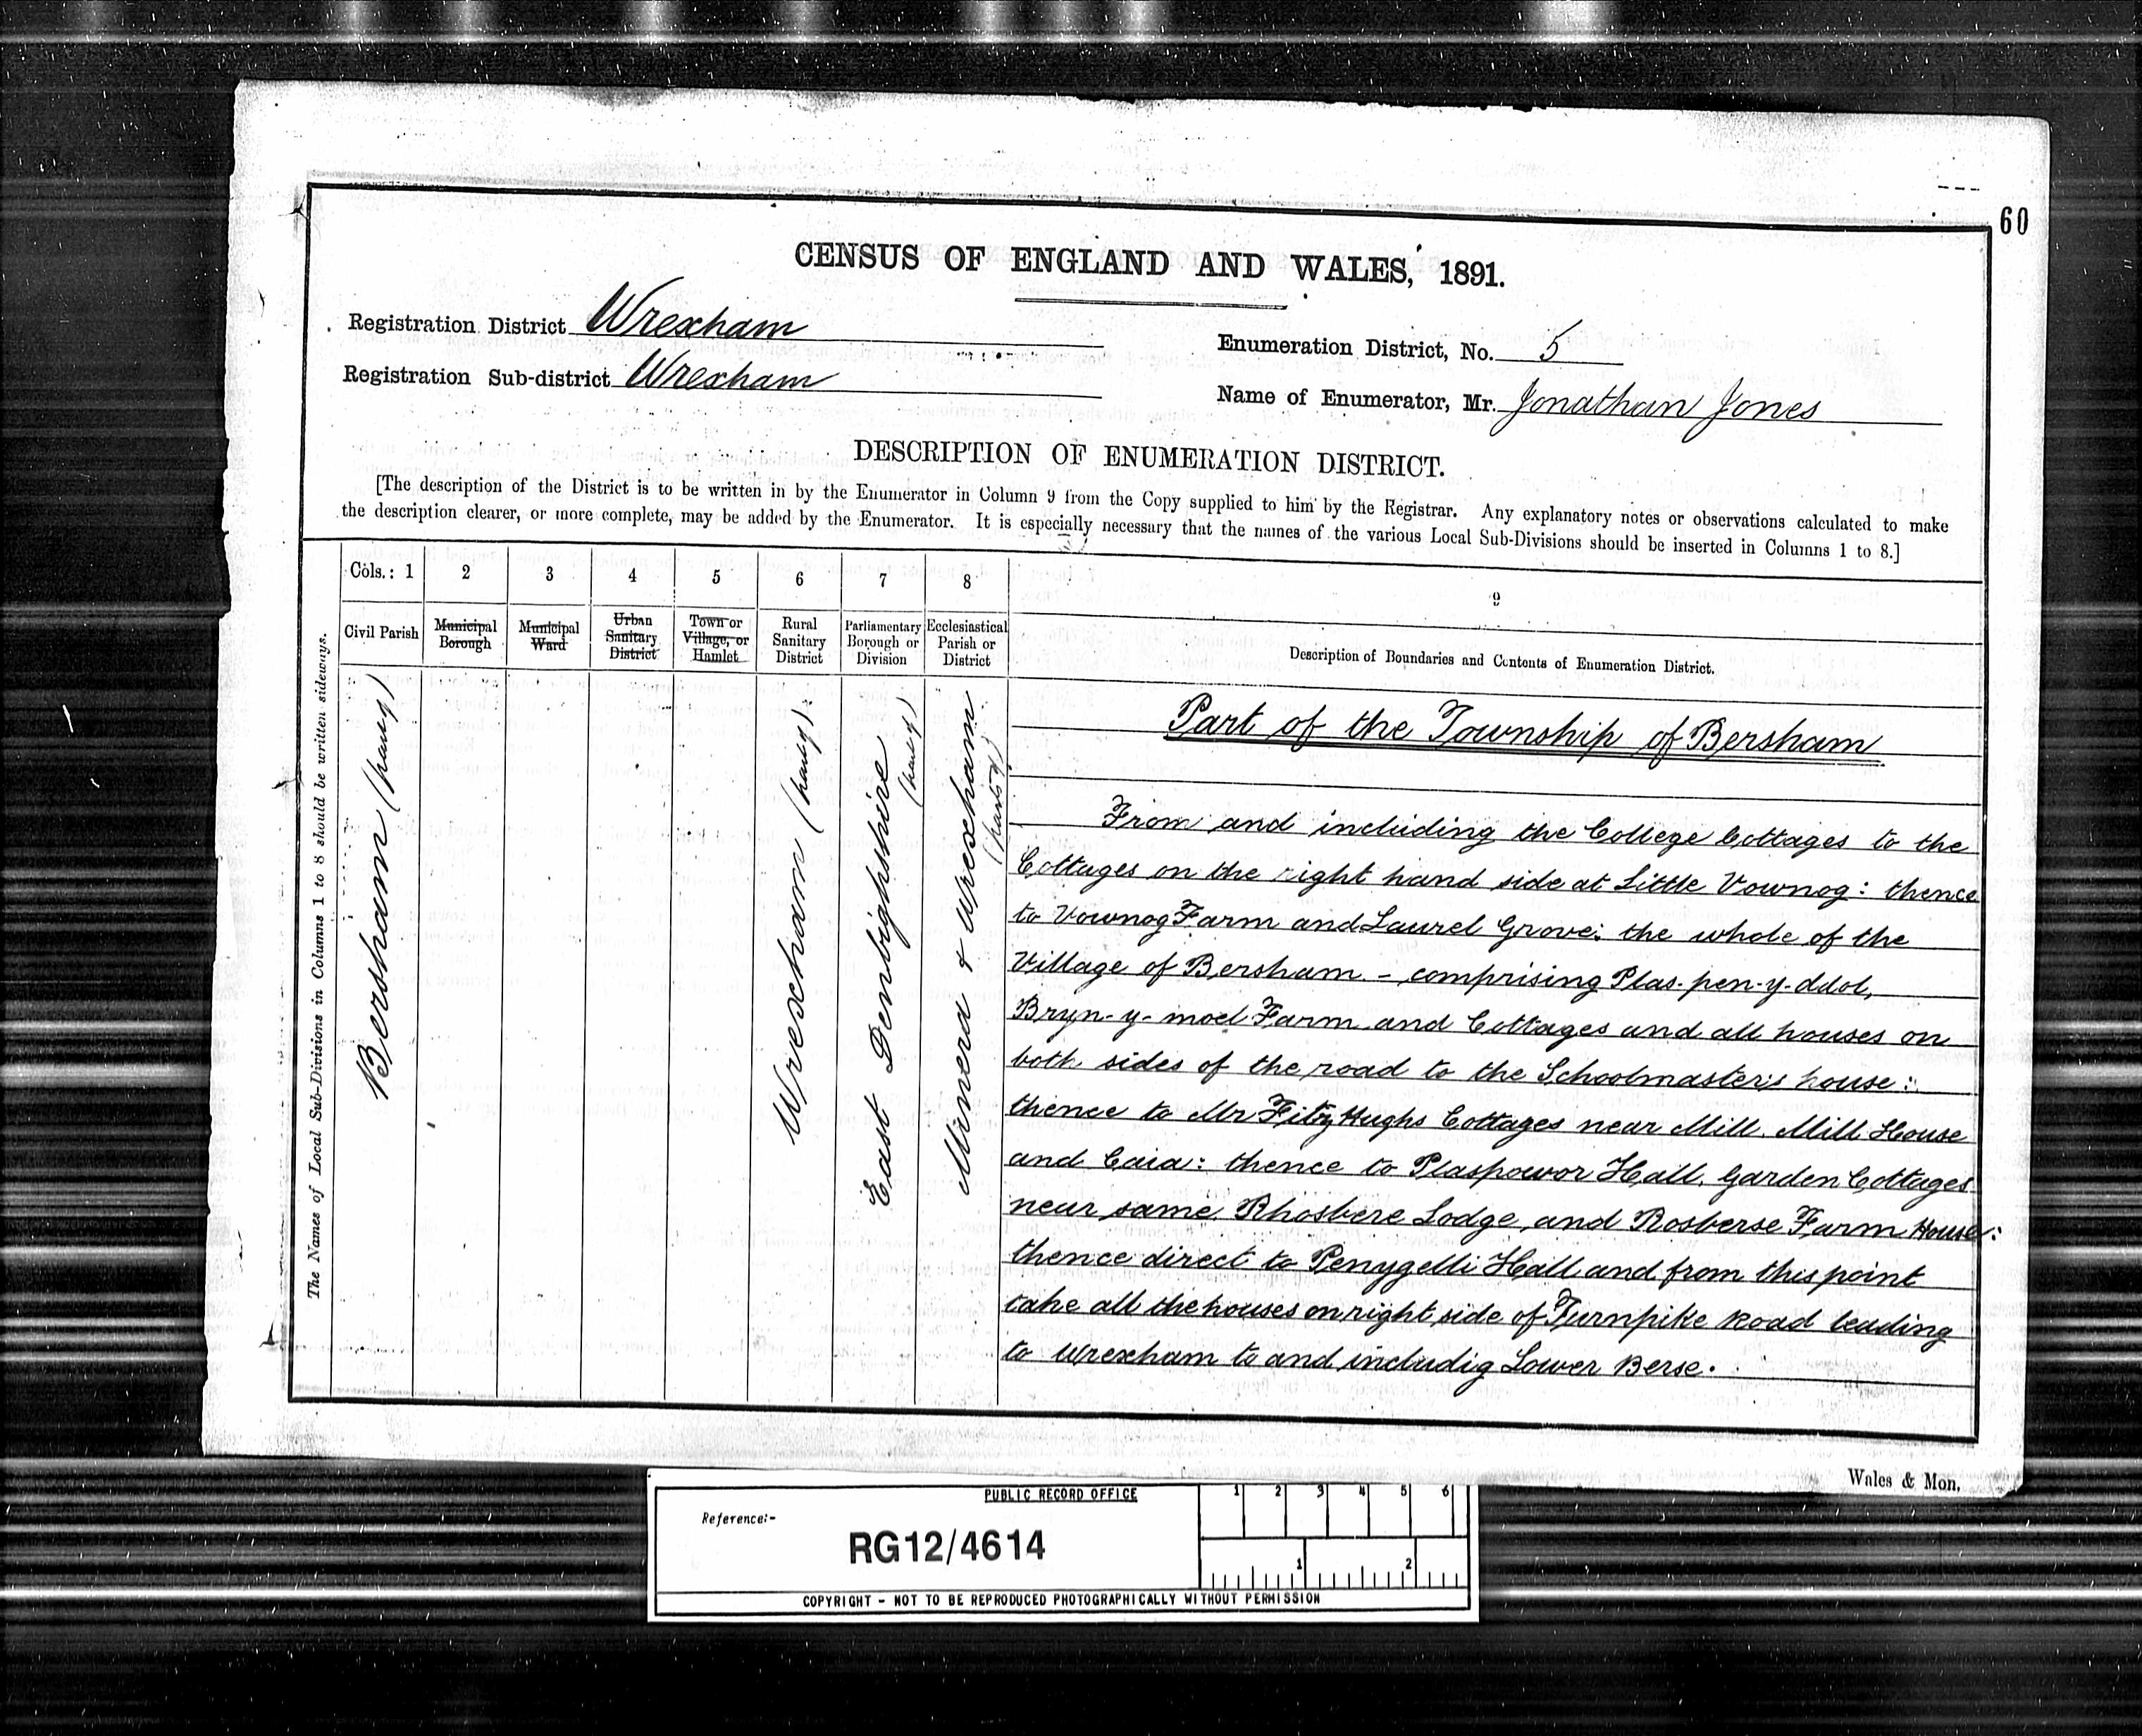 60
CENSUS OF ENGLAND AND WALES, 1891.
Registration District Wrexham
Enumeration District, No. 5
Registration Sub-district Wrexham
Name of Enumerator, Mr. Jonathan Jones
DESCRIPTION OF ENUMERATION DISTRICT.
[The description of the District is to be written in by the Enumerator in Column 9 from the Copy supplied to him by the Registrar. Any explanatory notes or observations calculated to make
the description clearer, or more complete, may be added by the Enumerator. It is especially necessary that the names of the various Local Sub-Divisions should be inserted in Columns 1 to 8.]
The Names of Local Sub-Divisions in Columns 1 to 8 should be written sideways.
Cols.: 1 2 3 4 5 6 7 8 9
Civil Parish
Municipal
Borough
Municipal
Ward
Urban
Sanitary
District
Town or
Village, or
Hamlet
Rural
Sanitary
District
Parliamentary
Borough or
Division
Ecclesiastical
Parish or
District
Description of Boundaries and Contents of Enumeration District.
Bersham (part of)
Wrexham (part of)
East Denbighshire
(part of)
Minera & Wrexham
(parts of)
Part of the Township of Bersham
From and including the College Cottages to the
Cottages on the right hand side at Little Vownog: thence
to Vownog Farm and Laurel Grove: the whole of the
Village of Bersham - comprising Plas-pen-y-ddol,
Bryn-y-moel Farm and Cottages and all houses on
both sides of the road to the Schoolmaster's house:
thence to Mr FitzHughs Cottages near Mill. Mill House
and Caia: thence to Plaspowor Hall, Garden Cottages
near same. Rhosbere Lodge, and Rosberse Farm House:
thence direct to Penygelli Hall and from this point
take all the houses on right side of Turnpike Road leading
to Wrexham to and includig Lower Berse.
Wales & Mon.
PUBLIC RECORD OFFICE
1 2 3 4 5 6
Reference:-
RG12/4614
1 2
COPYRIGHT - NOT TO BE REPRODUCED PHOTOGRAPHICALLY WITHOUT PERMISSION